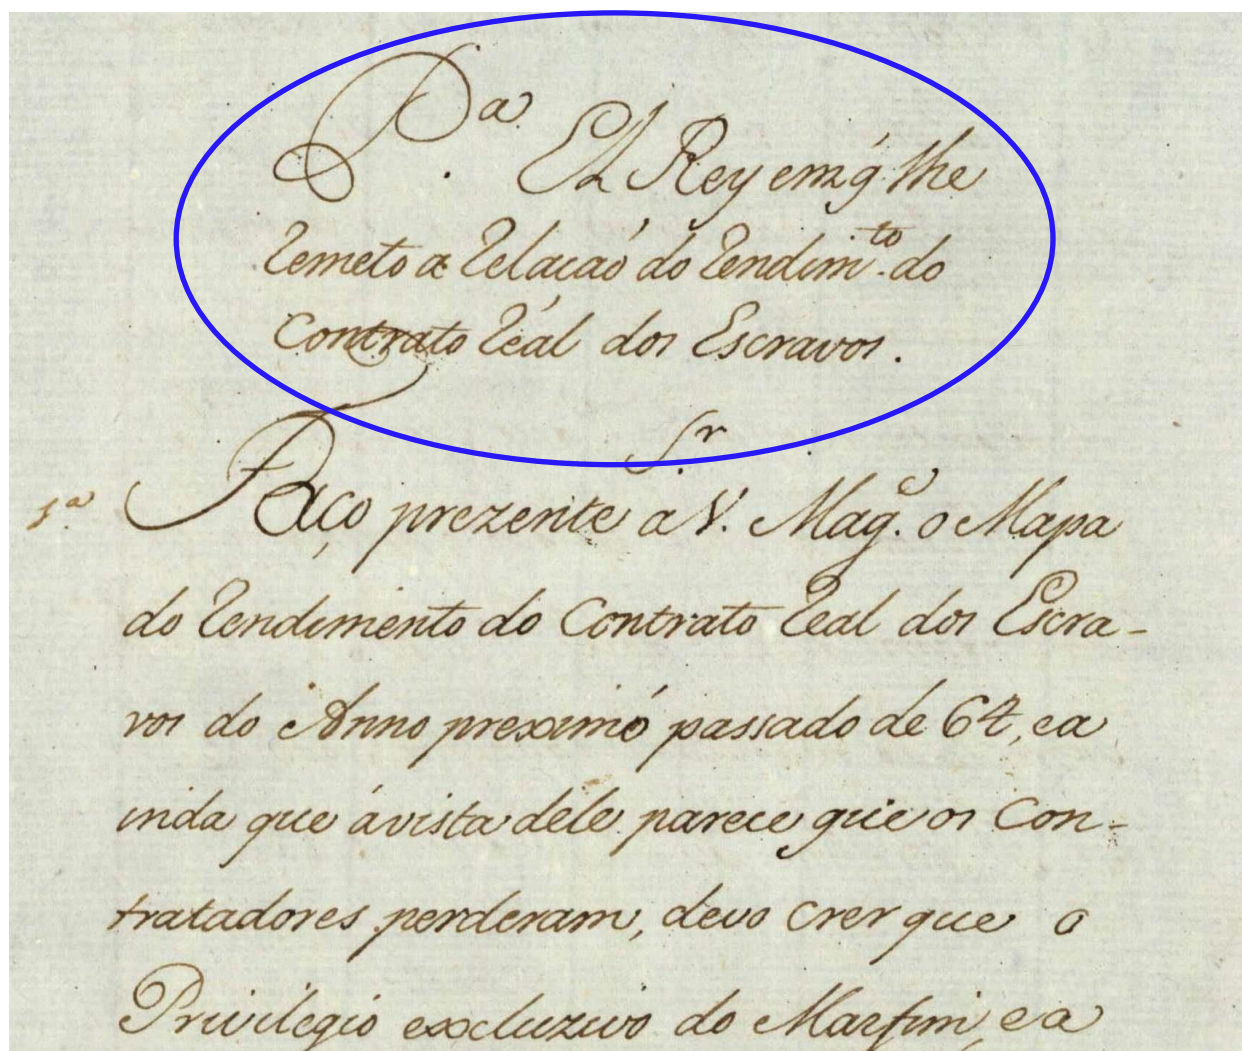 P.ª El Rey em q̃ lhe
remeto a relaçaó do rendim.to do
Contrato reál dos Escravos.
S.r
1.ª Faço prezente a V. Mag.e o Mapa
do rendimento do Contrato real dos Escra-
vos do Anno preximo passado de 64, ea
inda que ávista déle parece que os Con-
tratadores perderam, devo crer que o
Privilegio excluzivo do Marfim, e a